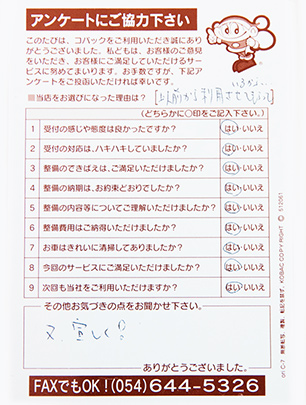 アンケートにご協力下さい
このたびは、コバックをご利用いただき誠にあり
がとうございました。私どもは、お客様のご意見
をいただき、お客様にご満足していただけるサー
ビスに努めてまいります。お手数ですが、下記アン
ケートをご投函いただければ幸いです。
■当店をお選びになった理由は？
いるから。
以前から利用させてもらって
(どちらかに○印をご記入下さい。)
1 受付の感じや態度は良かったですか？ はい・いいえ
2 受付の対応は、ハキハキしていましたか？ はい・いいえ
3 整備のできばえは、ご満足いただけましたか？ はい・いいえ
4 整備の納期は、お約束どおりでしたか？ はい・いいえ
5 整備の内容等についてご理解いただけましたか？ はい・いいえ
6 整備費用はご納得いただけましたか？ はい・いいえ
7 お車はきれいに清掃してありましたか？ はい・いいえ
8 今回のサービスにご満足いただけましたか？ はい・いいえ
9 次回も当社をご利用いただけますか？ はい・いいえ
その他お気づきの点をお聞かせ下さい。
又、宜しく!
ありがとうございました。
FAXでもOK！(054)644-5326
ori. C-7 無断転写、複製、転記を禁ず。 KOBAC COPY RIGHT © 512051